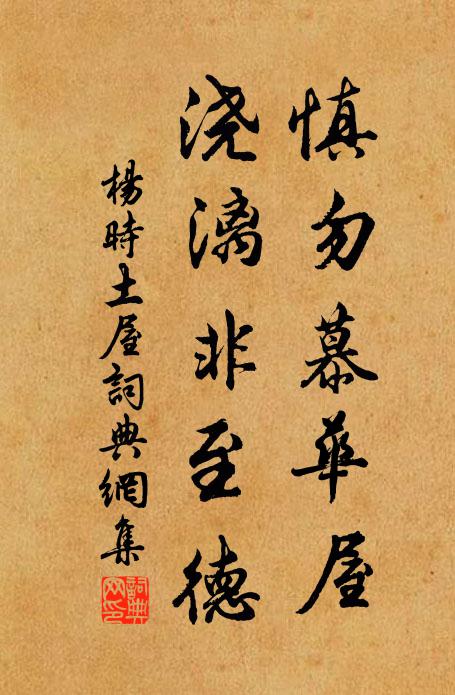 慎勿慕華屋
浇漓非至德
楊時土屋詞典網集
詞典网印